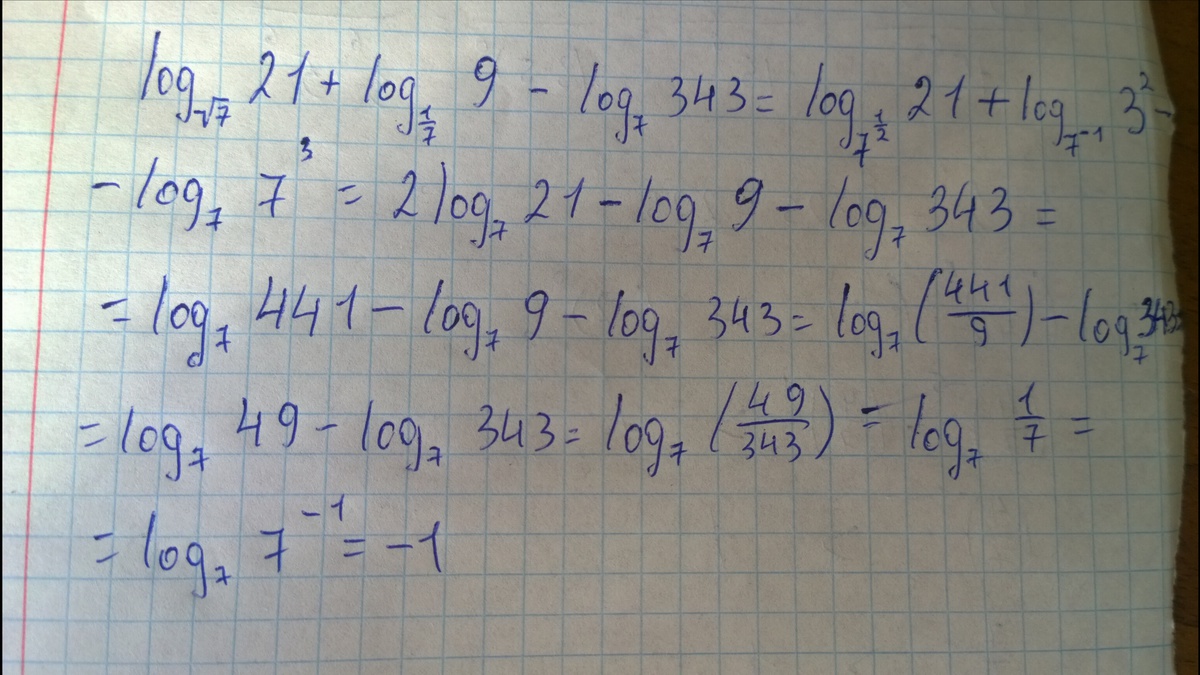 log_{√7} 21 + log_{1/7} 9 - log_7 343 = log_{7^{1/2}} 21 + log_{7^{-1}} 3^2 -
- log_7 7^3 = 2 log_7 21 - log_7 9 - log_7 343 =
= log_7 441 - log_7 9 - log_7 343 = log_7 (441/9) - log_7 343 =
= log_7 49 - log_7 343 = log_7 (49/343) = log_7 1/7 =
= log_7 7^{-1} = -1